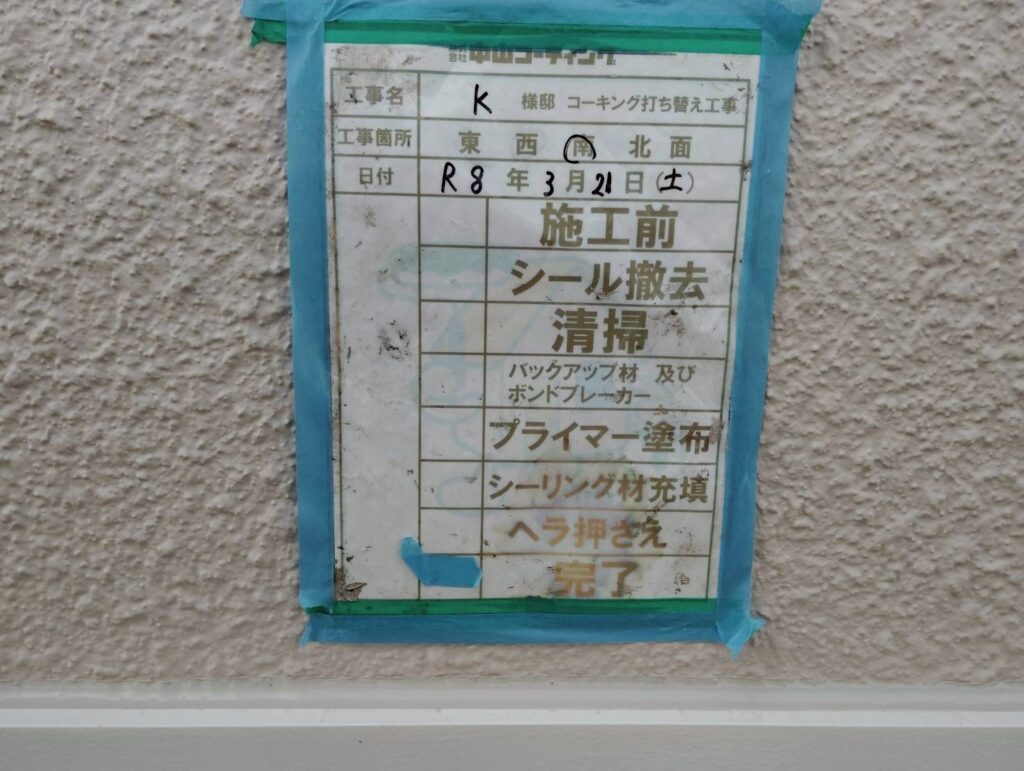 中山コーティング
工事名 K 様邸 コーキング打ち替え工事
工事箇所 東 西 南 北 面
日付 R8年3月21日(土)
施工前
シール撤去
清掃
バックアップ材 及び
ボンドブレーカー
プライマー塗布
シーリング材充填
ヘラ押さえ
完了